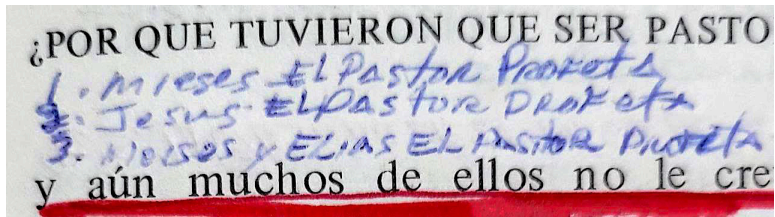 ¿POR QUE TUVIERON QUE SER PASTO
1. Mieses EL PAStOR PROFetA
2. Jesus EL PAStOR PROFetA
3. Moises y ELIAS EL PAStOR PROFetA
y aún muchos de ellos no le cre